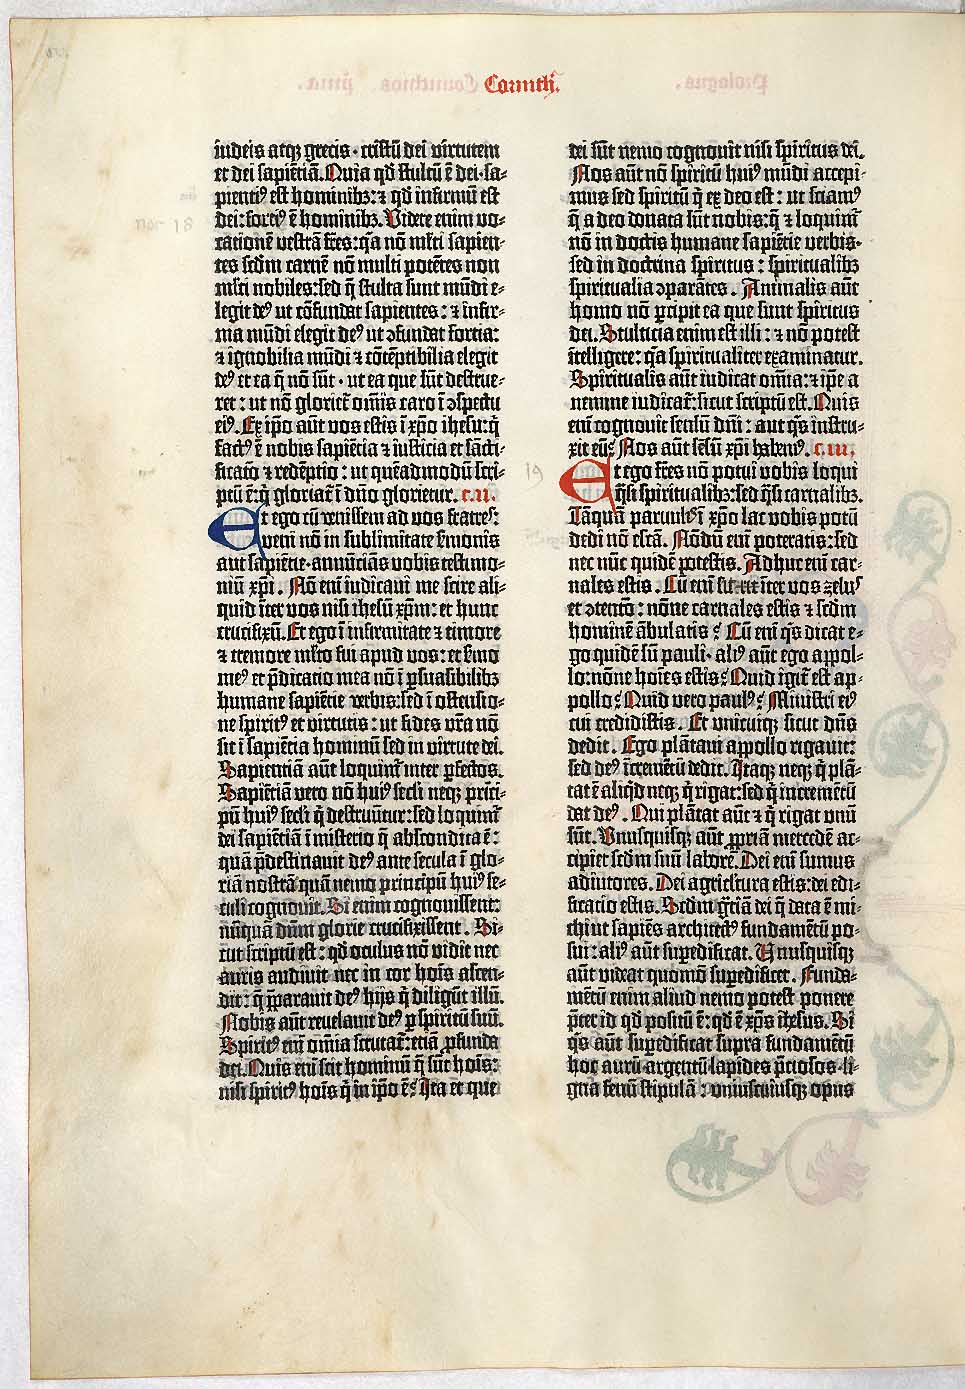 Corinth.
iudeis atqꝫ grecis · cristū dei virtutem
et dei sapiētiā. Quia qd̄ stultū ē dei · sa⸗
pientiꝰ est hominibꝫ: ⁊ qd̄ infirmū est
dei: fortiꝰ ē hominibꝫ. Videte enim vo⸗
cationē vestrā fr̄es: q̄a nō ml̄ti sapien⸗
tes scd̄m carnē nō multi potētes non
ml̄ti nobiles: sed q̄ stulta sunt mūdi e⸗
legit deꝰ ut cōfundat sapientes: ⁊ infir⸗
ma mūdi elegit deꝰ ut ↄfundat fortia:
⁊ ignobilia mūdi ⁊ cōtēptibilia elegit
deꝰ et ea q̄ nō sūt · ut ea que sūt destrue⸗
ret: ut nō gloriet̄ om̄is caro ī ↄspectu
eiꝰ. Ex ip̄o aūt vos estis ī xp̄o ihesu: q̄
factꝰ ē nobis sapiētia ⁊ iusticia et sāct̄i⸗
ficatio ⁊ redēptio: ut quēadmodū scri⸗
ptū ē: q̄ gloriat̄ ī dn̄o glorietur. c. ii.
Et ego cū venissem ad vos fratres:
veni nō in sublimitate s̄monis
aut sapiētie · annūciās vobis testimo⸗
niū xp̄i. Nō eni͞ iudicavi me scire ali⸗
quid īter vos nisi ihesū xp̄m: et hunc
crucifixū. Et ego ī infirmitate ⁊ timore
⁊ tremore ml̄to fui apud vos: et s̄mo
meꝰ et p̄dicatio mea nō ī ꝑsuasibilibꝫ
humane sapiētie verbis: sed ī ostensio⸗
ne spiritꝰ et virtutis: ut fides vr̄a nō
sit ī sapiētia hominū sed in virtute dei.
Sapientiā aūt loquimr̄ inter ꝑfectos.
Sapiētiā vero nō huiꝰ secl̄i neqꝫ prīci⸗
pū huiꝰ secl̄i q̄ destruūtur: sed loquimr̄
dei sapiētiā ī misterio q̄ abscondita ē:
quā p̄destinavit deꝰ ante secula ī glo⸗
riā nostrā quā nemo principū huiꝰ se⸗
culi cognovit. Si enim cognovissent:
nūquā dn̄m glorie crucifixissent. Si⸗
cut scriptū est: qd̄ oculus nō vidit nec
auris audivit nec in cor hoīs ascen⸗
dit: q̄ p̄paravit deꝰ hijs q̄ diligūt illū.
Nobis aūt revelavit deꝰ ꝑ spiritū suū.
Spiritꝰ eni͞ om̄ia scrutat̄: etiā ꝓfunda
dei. Quis eni͞ scit hominū q̄ sūt hoīs:
nisi spiritꝰ hoīs q̄ in ip̄o ē? Ita et que
dei sūt nemo cognovit nisi spiritus dei.
Nos aūt nō spiritū huiꝰ mūdi accepi⸗
mus sed spiritū q̄ ex deo est: ut sciamꝰ
q̄ a deo donata sūt nobis: q̄ ⁊ loquimr̄
nō in doctis humane sapiētie verbis ·
sed in doctrina spiritus: spiritualibꝫ
spiritualia ↄparātes. Animalis aūt
homo nō ꝑcipit ea que sunt spiritus
dei. Stulticia enim est illi: ⁊ nō potest
ītelligere: q̄a spiritualiter examinatur.
Spiritualis aūt iudicat om̄ia: ⁊ ip̄e a
nemine iudicat̄: sicut scriptū est. Quis
eni͞ cognovit sensū dn̄i: aut q̄s instru⸗
xit eū? Nos aūt sēsū xp̄i habemꝰ. c. iii.
Et ego fr̄es nō potui vobis loqui
q̄si spiritualibꝫ: sed q̄si carnalibꝫ.
Tāquā parvulis ī xp̄o lac vobis potū
dedi nō escā. Nōdū eni͞ poteratis: sed
nec nūc quidē potestis. Adhuc eni͞ car⸗
nales estis. Cū eni͞ sit īter vos zelus
et ↄtentō: nōne carnales estis ⁊ scd̄m
hominē ābulatis? Cū eni͞ q̄s dicat e⸗
go quidē sū pauli · aliꝰ aūt ego appol⸗
lo: nōne hoīes estis? Quid igit̄ est ap⸗
pollo? Quid vero paulꝰ? Ministri eiꝰ
cui credidistis. Et unicuiqꝫ sicut dn̄s
dedit. Ego plātavi appollo rigavit:
sed deꝰ īcremētū dedit. Itaqꝫ neqꝫ q̄ plā⸗
tat ē aliq̄d neqꝫ q̄ rigat: sed q̄ incremētū
dat deꝰ. Qui plātat aūt ⁊ q̄ rigat unū
sūt. Vnusquisqꝫ aūt ꝓpriā mercedē ac⸗
cipiet scd̄m suū laborē. Dei eni͞ sumus
adiutores. Dei agricl̄tura estis: dei edi⸗
ficatio estis. Scd̄m gr̄tiā dei q̄ data ē mi⸗
chi ut sapiēs architectꝰ fundamētū po⸗
sui: aliꝰ aūt suꝑedificat. Unusquisqꝫ
aūt videat quomō suꝑedificet. Funda⸗
mētū enim aliud nemo potest ponere
p̄ter id qd̄ positū ē: qd̄ ē xp̄s ihesus. Si
q̄s aūt suꝑedificat supra fundamētū
hoc aurū argentū lapides p̄ciosos · li⸗
gna fenū stipulā: uniuscuiusqꝫ opus
19